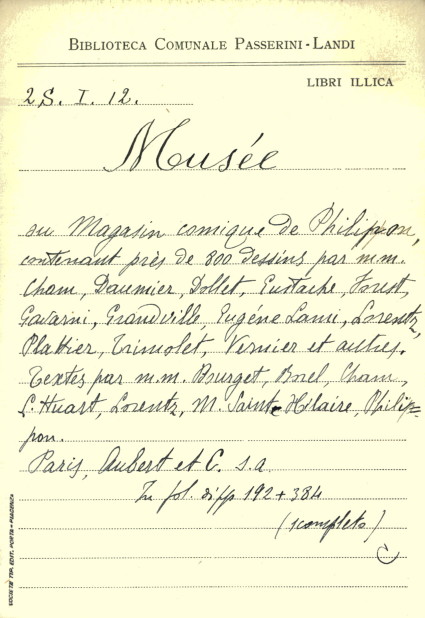 BIBLIOTECA COMUNALE PASSERINI-LANDI
LIBRI ILLICA
2S. I. 12.
Musée
ou Magasin comique de Philippon,
contenant près de 800 dessins par m.m.
Cham, Daumier, Dollet, Eustache, Forest,
Gavarni, Grandville, Eugène Lami, Lorentz,
Plattier, Trimolet, Vernier et autres.
Textes par m.m. Bourget, Borel, Cham,
L. Huart, Lorentz, M. Saint-Hilaire, Philip=
pon.
Paris, Aubert et C. s.a.
In fol. di pp 192 + 384
(scompleto)
C
SOCIETÀ TIP. EDIT. PORTA - PIACENZA